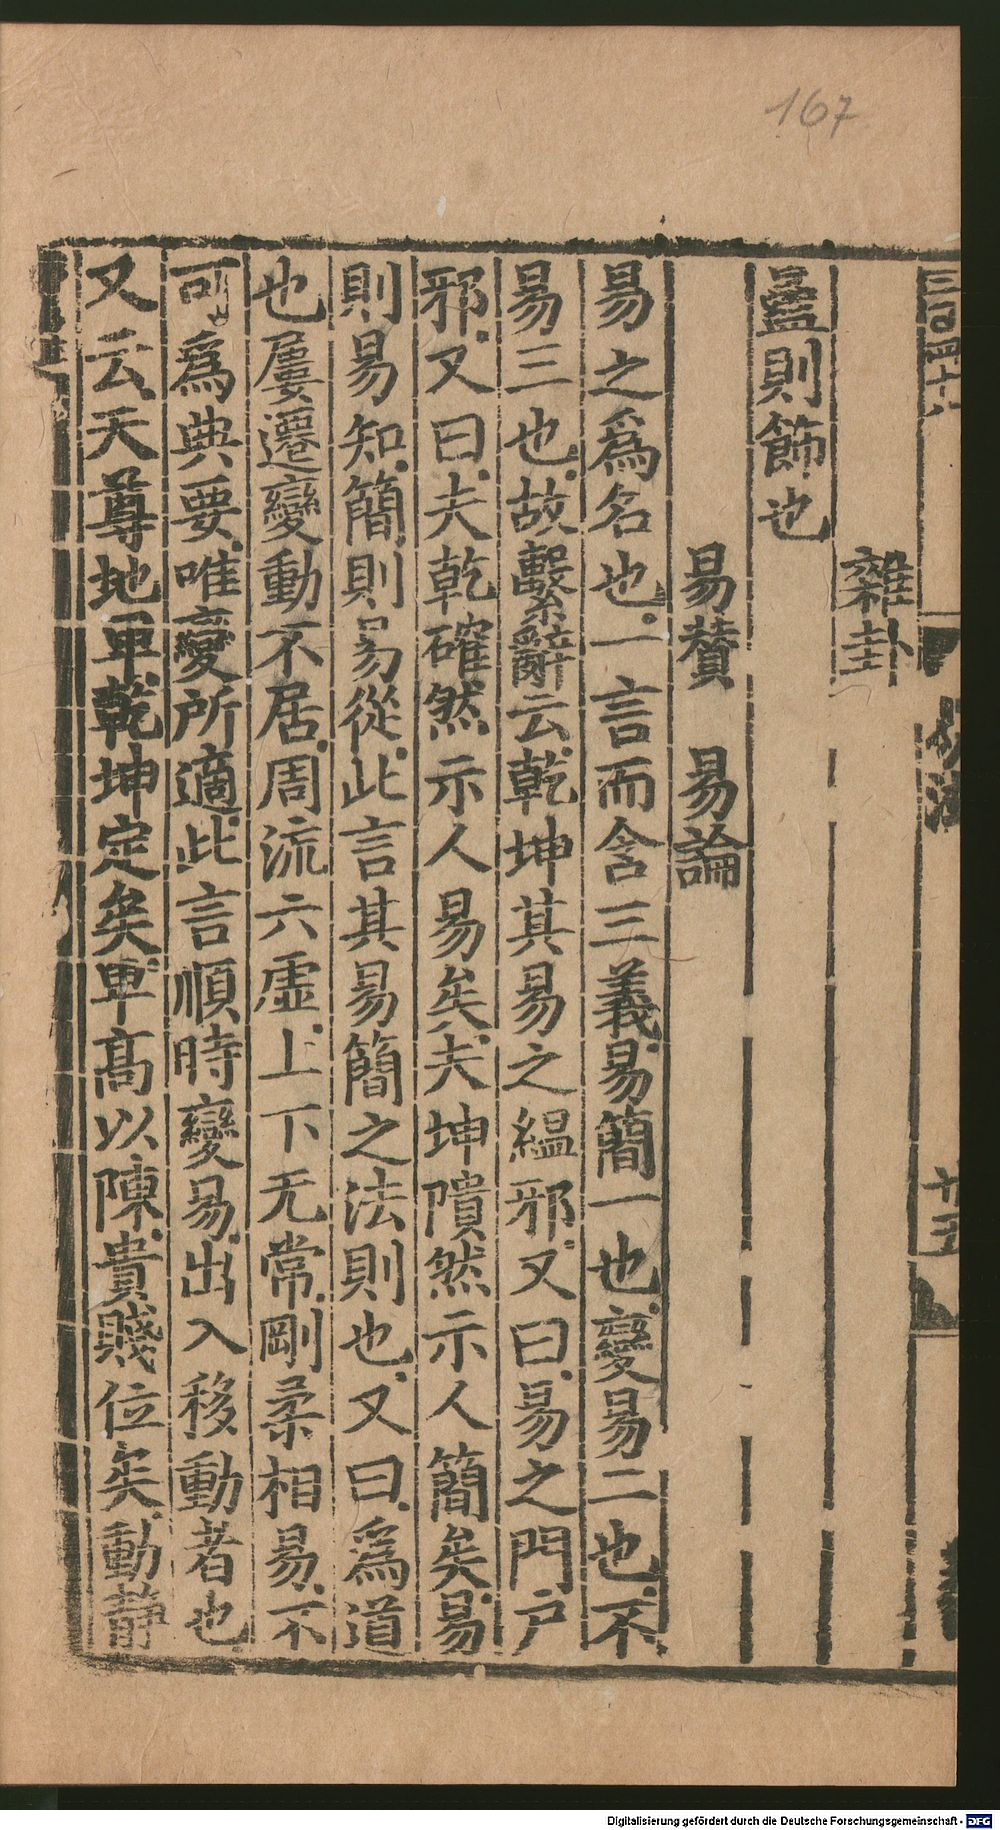 167
三百四十六
廿五
雜卦
蠱則飾也
易贊 易論
易之爲名也一言而含三義易簡一也變易二也不
易三也故繫辭云乾坤其易之縕邪又曰易之門戶
邪又曰夫乾確然示人易矣夫坤隤然示人簡矣易
則易知簡則易從此言其易簡之法則也又曰爲道
也屢遷變動不居周流六虛上下无常剛柔相易不
可爲典要唯變所適此言順時變易出入移動者也
又云天尊地卑乾坤定矣卑高以陳貴賤位矣動静
Digitalisierung gefördert durch die Deutsche Forschungsgemeinschaft - DFG